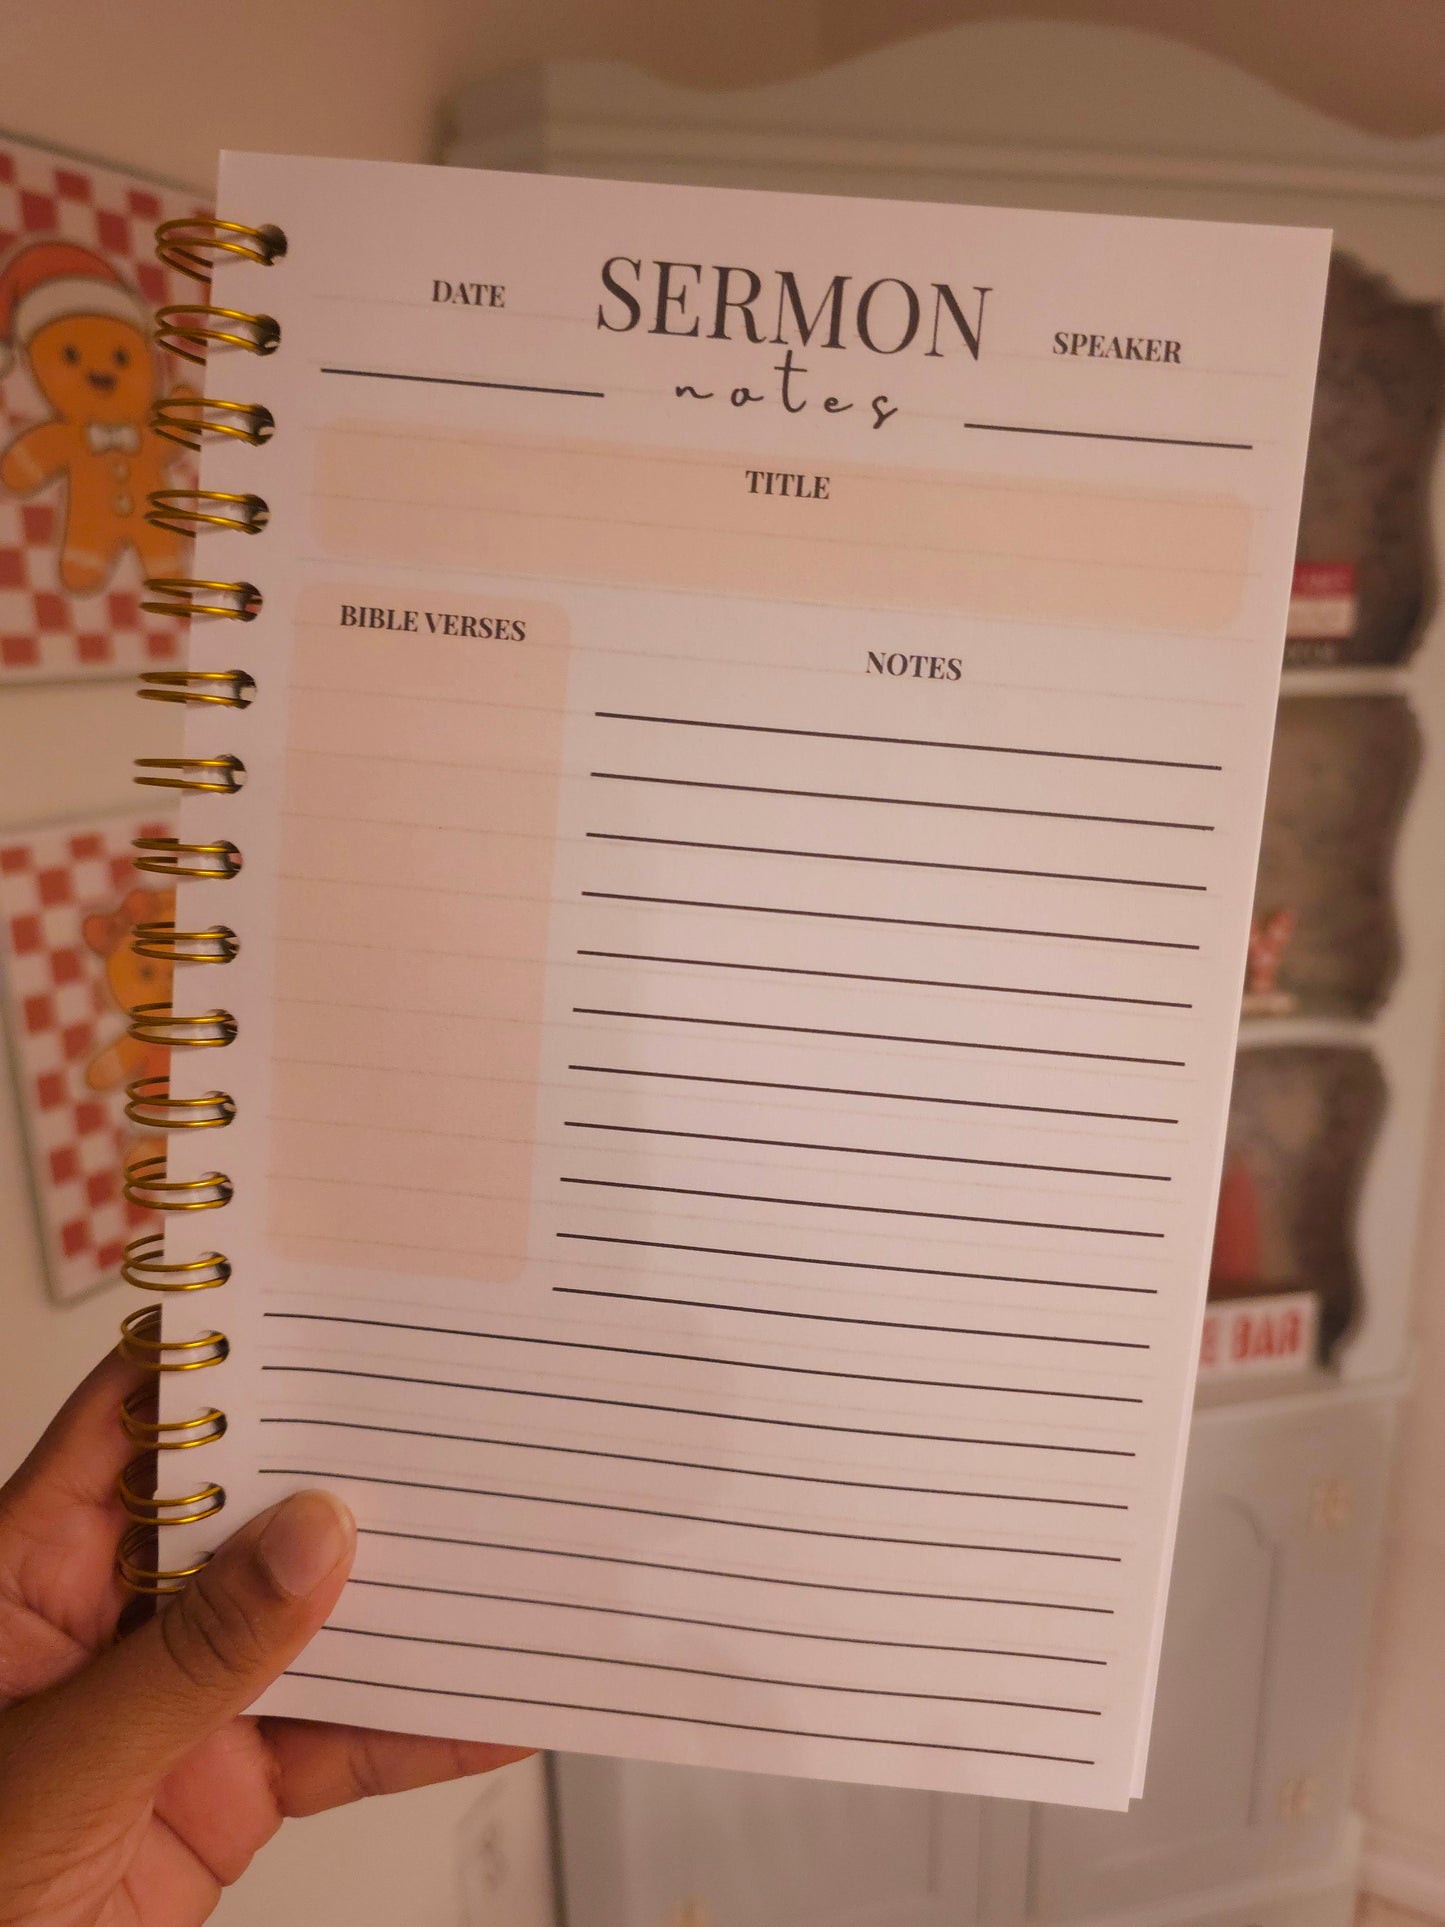 DATE
SERMON
notes
SPEAKER
TITLE
BIBLE VERSES
NOTES
E BAR